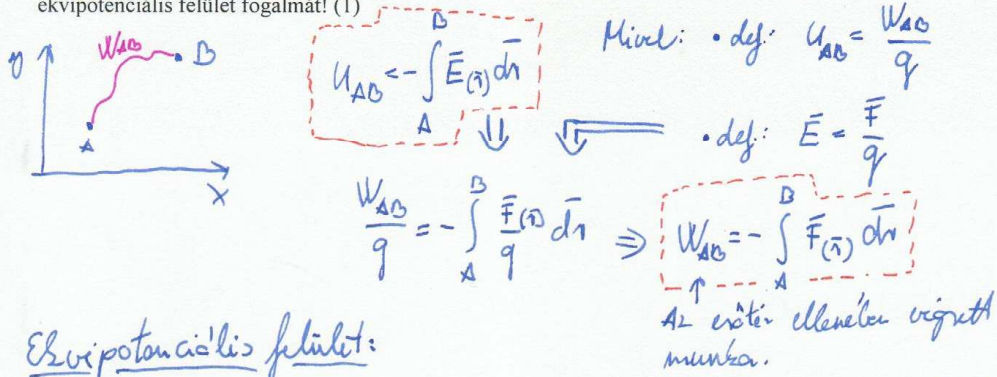 ekvipotenciális felület fogalmát! (1)
y
W_AB
B
A
x
U_AB = -∫_A^B Ē(r̄) dr̄
Mivel: • def: U_AB = W_AB / q
⇓
• def: Ē = F̄ / q
W_AB / q = -∫_A^B F̄(r̄) / q dr̄ ⇒ W_AB = -∫_A^B F̄(r̄) dr̄
↑
Az erőtér ellenében végzett
munka.
Ekvipotenciális felület: